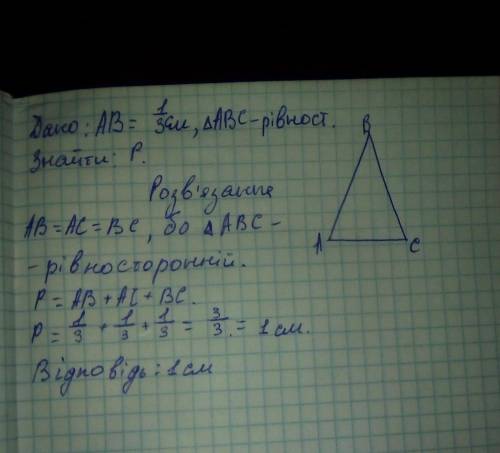 Дано: AB = 1/3 см, △ABC - рівност.
Знайти: P.
Розв'язання
AB = AC = BC, бо △ABC -
- рівносторонній.
P = AB + AC + BC.
P = 1/3 + 1/3 + 1/3 = 3/3 = 1 см.
Відповідь: 1 см
B
A
C